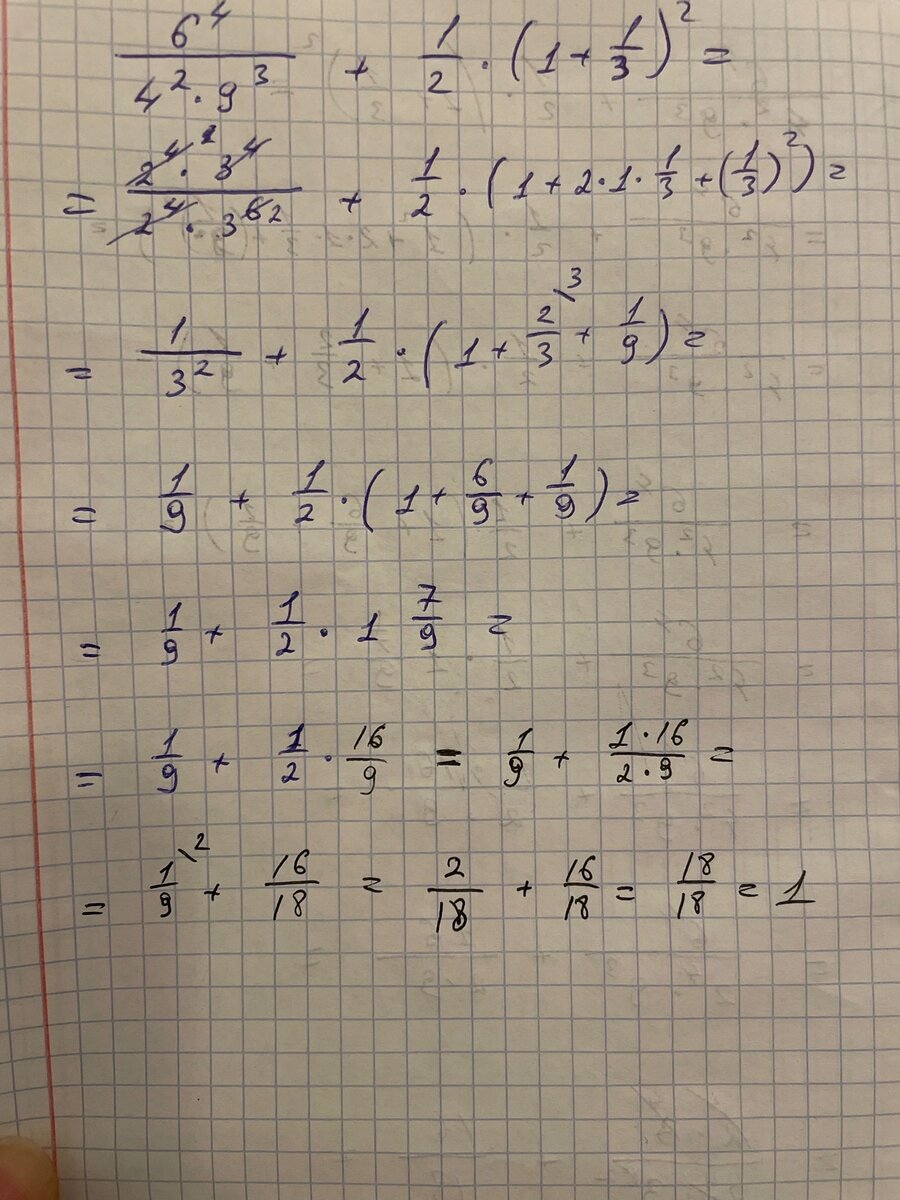 6⁴/(4²·9³) + 1/2 · (1 + 1/3)² =
= (2⁴ · 3⁴)/(2⁴ · 3⁶ ²) + 1/2 · (1 + 2·1·1/3 + (1/3)²) =
= 1/3² + 1/2 · (1 + 2/3 \3 + 1/9) =
= 1/9 + 1/2 · (1 + 6/9 + 1/9) =
= 1/9 + 1/2 · 1 7/9 =
= 1/9 + 1/2 · 16/9 = 1/9 + (1·16)/(2·9) =
= 1/9 \2 + 16/18 = 2/18 + 16/18 = 18/18 = 1